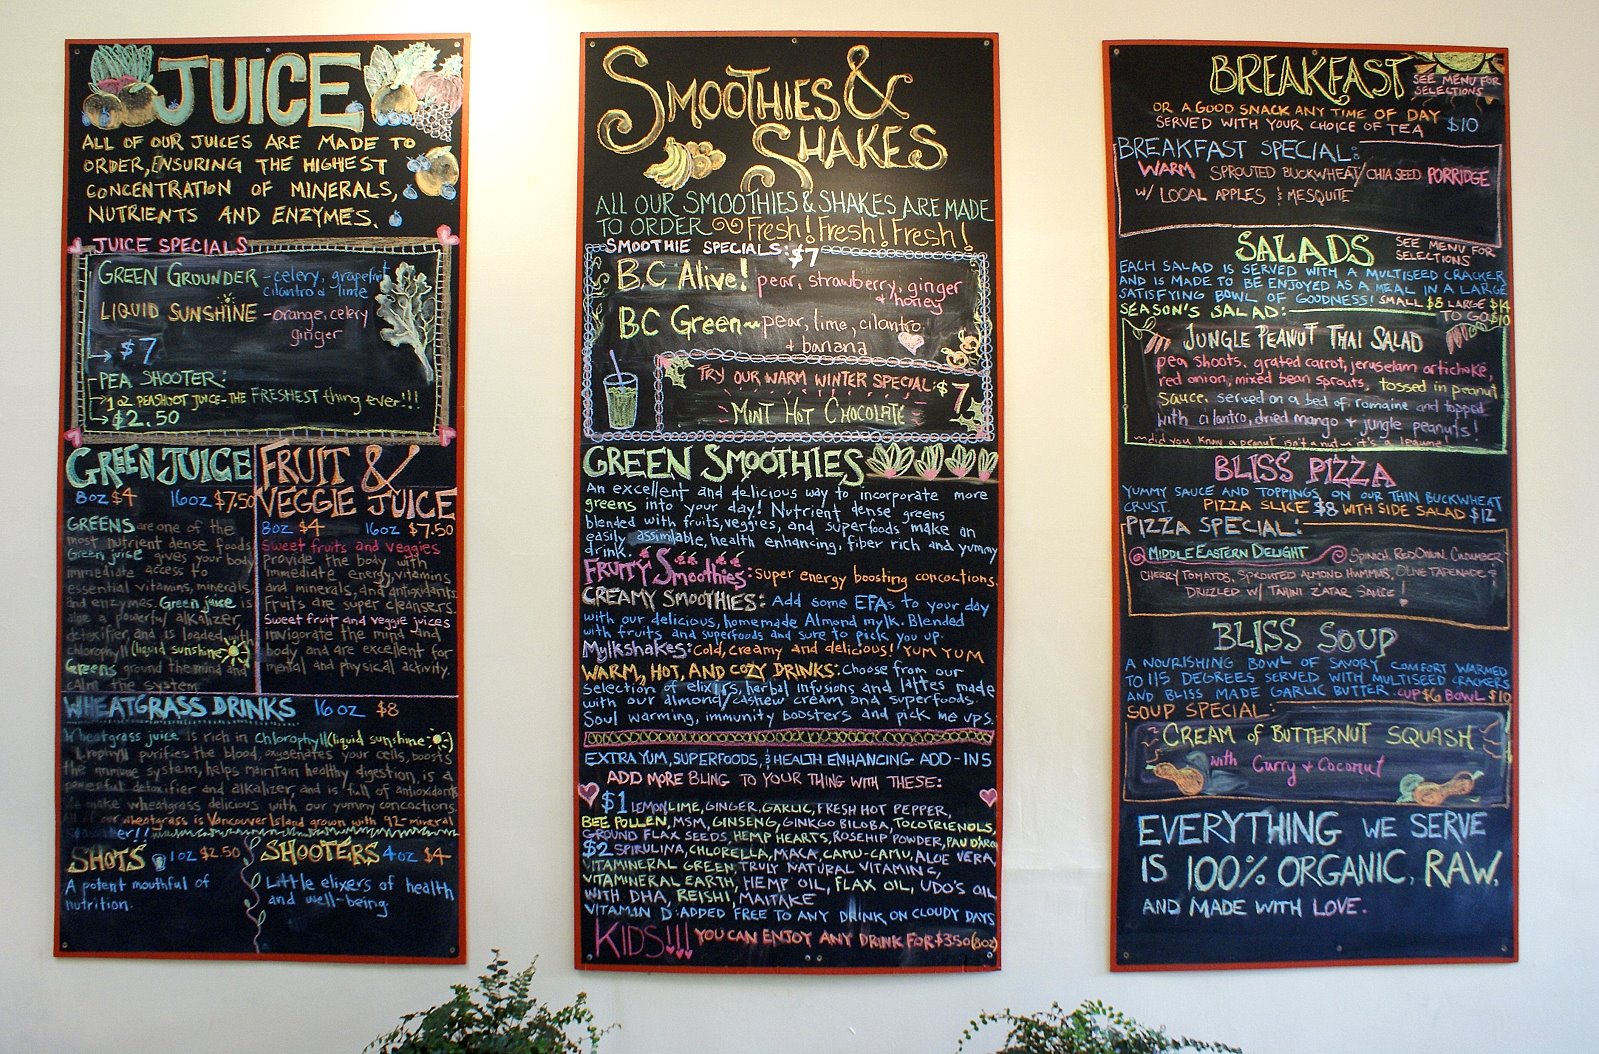 JUICE
ALL OF OUR JUICES ARE MADE TO
ORDER, ENSURING THE HIGHEST
CONCENTRATION OF MINERALS,
NUTRIENTS AND ENZYMES.
JUICE SPECIALS
GREEN GROUNDER - celery, grapefruit
cilantro & lime
LIQUID SUNSHINE - orange, celery
ginger
→ $7
PEA SHOOTER:
→ 1 oz PEASHOOT JUICE - THE FRESHEST thing ever!!!
→ $2.50
GREEN JUICE
8oz $4 16oz $7.50
GREENS are one of the
most nutrient dense foods
Green juice gives your body
immediate access to
essential vitamins, minerals,
and enzymes. Green juice is
also a powerful alkalizer,
detoxifier, and is loaded with
chlorophyll (liquid sunshine
Greens ground the mind and
calm the system.
FRUIT &
VEGGIE JUICE
8oz $4 16oz $7.50
Sweet fruits and veggies
provide the body with
immediate energy, vitamins
and minerals, and antioxidants.
Fruits are super cleansers.
Sweet fruit and veggie juices
invigorate the mind and
body and are excellent for
mental and physical activity.
WHEATGRASS DRINKS 16 oz $8
Wheatgrass juice is rich in chlorophyll (liquid sunshine)
purifies the blood, oxygenates your cells, boosts
the immune system, helps maintain healthy digestion, is a
powerful detoxifier and alkalizer, and is full of antioxidants
make wheatgrass delicious with our yummy concoctions.
our wheatgrass is Vancouver Island grown with 92-mineral
SHOTS 1oz $2.50
A potent mouthful of
nutrition.
SHOOTERS 4oz $4
Little elixers of health
and well-being.
SMOOTHIES &
SHAKES
ALL OUR SMOOTHIES & SHAKES ARE MADE
TO ORDER Fresh! Fresh! Fresh!
SMOOTHIE SPECIALS: $7
B.C Alive! pear, strawberry, ginger
+ honey
BC Green ~ pear, lime, cilantro
+ banana
TRY OUR WARM WINTER SPECIAL: $7
MINT HOT CHOCOLATE
GREEN SMOOTHIES
An excellent and delicious way to incorporate more
greens into your day! Nutrient dense greens
blended with fruits, veggies, and superfoods make an
easily assimilable, health enhancing, fiber rich and yummy
drink.
FRUITY Smoothies: Super energy boosting concoctions.
CREAMY SMOOTHIES: Add some EFAs to your day
with our delicious, homemade Almond mylk. Blended
with fruits and superfoods and sure to pick you up.
Mylkshakes: Cold, creamy and delicious! YUM YUM
WARM, HOT, AND COZY DRINKS: Choose from our
selection of elixirs, herbal infusions and lattes made
with our almond/cashew cream and superfoods.
Soul warming, immunity boosters and pick me ups.
EXTRA YUM, SUPERFOODS, & HEALTH ENHANCING ADD-INS
ADD MORE BLING TO YOUR THING WITH THESE:
$1 LEMON, LIME, GINGER, GARLIC, FRESH HOT PEPPER,
BEE POLLEN, MSM, GINSENG, GINKGO BILOBA, TOCOTRIENOLS,
GROUND FLAX SEEDS, HEMP HEARTS, ROSEHIP POWDER, PAU D'ARCO
$2 SPIRULINA, CHLORELLA, MACA, CAMU-CAMU, ALOE VERA,
VITAMINERAL GREEN, TRULY NATURAL VITAMIN C,
VITAMINERAL EARTH, HEMP OIL, FLAX OIL, UDO'S OIL
WITH DHA, REISHI, MAITAKE
VITAMIN D: ADDED FREE TO ANY DRINK ON CLOUDY DAYS
KIDS!!! YOU CAN ENJOY ANY DRINK FOR $3.50 (8oz)
BREAKFAST SEE MENU FOR
SELECTIONS
OR A GOOD SNACK ANY TIME OF DAY
SERVED WITH YOUR CHOICE OF TEA $10
BREAKFAST SPECIAL:
WARM SPROUTED BUCKWHEAT/CHIA SEED PORRIDGE
W/ LOCAL APPLES & MESQUITE
SALADS SEE MENU FOR
SELECTIONS
EACH SALAD IS SERVED WITH A MULTISEED CRACKER
AND IS MADE TO BE ENJOYED AS A MEAL IN A LARGE
SATISFYING BOWL OF GOODNESS! SMALL $8 LARGE $14
SEASON'S SALAD: TO GO $10
JUNGLE PEANUT THAI SALAD
pea shoots, grated carrot, jeruselam artichoke,
red onion, mixed bean sprouts, tossed in peanut
sauce. served on a bed of romaine and topped
with cilantro, dried mango + jungle peanuts!
did you know a peanut isn't a nut - it's a legume!
BLISS PIZZA
YUMMY SAUCE AND TOPPINGS ON OUR THIN BUCKWHEAT
CRUST. PIZZA SLICE $8 WITH SIDE SALAD $12
PIZZA SPECIAL:
MIDDLE EASTERN DELIGHT SPINICH, RED ONION, CUCUMBER
CHERRY TOMATOS, SPROUTED ALMOND HUMMUS, OLIVE TAPENADE &
DRIZZLED W/ TAHINI ZATAR SAUCE!
BLISS SOUP
A NOURISHING BOWL OF SAVORY COMFORT WARMED
TO 115 DEGREES SERVED WITH MULTISEED CRACKERS
AND BLISS MADE GARLIC BUTTER. CUP $6 BOWL $10
SOUP SPECIAL:
CREAM of BUTTERNUT SQUASH
with Curry + Coconut
EVERYTHING WE SERVE
IS 100% ORGANIC, RAW,
AND MADE WITH LOVE.